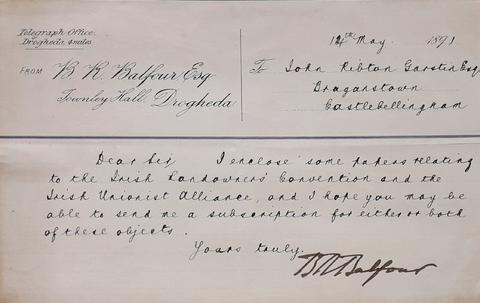 Telegraph-Office,
Drogheda, 4 miles
14th May. 1891
FROM B. R. Balfour Esq
To John Ribton Garstin Esq.
Townley Hall, Drogheda
Braganstown
Castlebellingham
Dear Sir I enclose some papers relating
to the Irish Landowners' Convention and the
Irish Unionist Alliance, and I hope you may be
able to send me a subscription for either or both
of these objects.
Yours truly.
B R Balfour